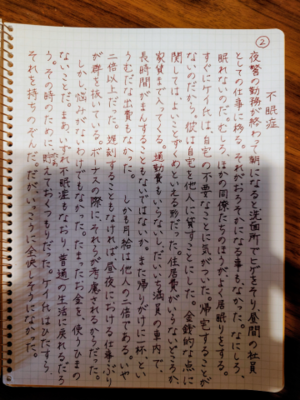 ②
不眠症
夜警の勤務が終わって朝になると、洗面所でヒゲをそり、昼間の社員
としての仕事に移る。それがおろそかになる事もなかった。なにしろ、
眠れないのだ。むしろ、ほかの同僚たちのほうがよく居眠りをする。
すぐにケイ氏は、自宅の不要なことに気がついた。帰宅することが
ないのだから。彼は自宅を他人に貸すことにした。金銭的な点に
関しては、よいことずくめといえる形だった。住居費がいらないどころか、
家賃まで入ってくる。通勤費もいらないし、だいいち、満員の車内で、
長時間がまんすることもないではないか。また、帰りがけに一杯とい
うむだな出費もなかった。しかも、月給は他人の二倍である。いや、
二倍以上だった。遅刻することもなければ、昼夜における仕事ぶり
が群を抜いている。ボーナスの際に、それらが考慮されるからだった。
しかし、悩みがないわけでもなかった。たまったお金を、使うひまの
ないことだ。まあ、いずれ不眠症もなおり、普通の生活に戻れるだろ
う。その時のために、貯えておくつもりだった。ケイ氏はひたすら、
それを待ちのぞんだ。だが、いっこうに全快しそうになかった。